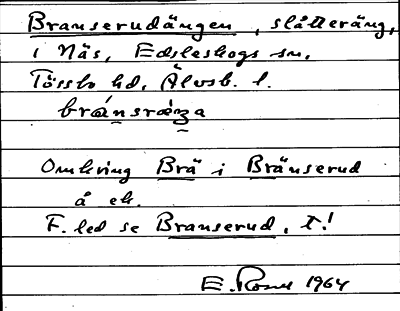 Branserudängen, slåtteräng,
i Näs, Edsleskogs sn.
Tössbo hd, Älvsb. l.
Omkring Brä i Bränserud
å ek.
F. led se Branserud, t.!
E. Rosell 1964